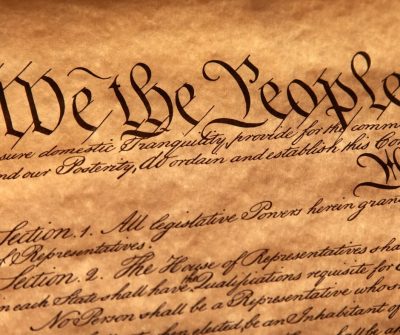 We the People
sure domestic Tranquility, provide for the comm
nd our Posterity, do ordain and establish this Con
Section. 1. All legislative Powers herein gran
of Representatives.
Section. 2. The House of Representatives sha
in each State shall have the Qualifications requisite for
No Person shall be a Representative who s
when elected, be an Inhabitant of